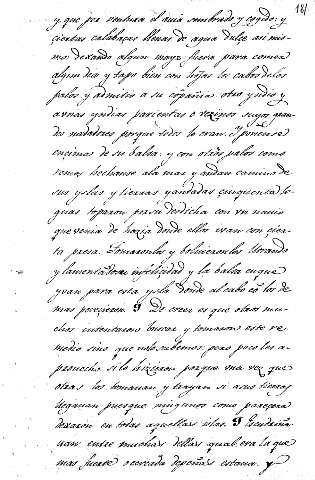 181
y que por ventura el auia sembrado y cogido: y
ciertas calabaças llenas de agua dulce asi mis-
mo dexando algun mayz fuera para comer
algun dia y tapo bien con hojas los cabos delos
palos, y admitio a su copañia otro yndio, y
a vnas yndias parientas o vezinas suyas gran-
des nadadores porque todos lo eran. y ponense
encima de su balsa: y con otros palos como
remos hechanse ala mar y andan camino de
sus yslas y tierras y andadas cinquenta le-
guas toparon por su desdicha con vn nauio
que venia de hazia donde ellos yvan con cier-
ta presa. Tomaronlos y boluieronlos llorando
y lamentando su infelicidad y la balsa en que
yvan para esta ysla donde al cabo co los de-
mas perecieron. De creer es que otros mu-
chos intentaron buscar y tomaron este re
medio sino que nolo sabemos: pero poco les a-
prouecho si lo hizieron porque vna vez que
otras los tomauan y trayan si a sus tierras
llegauan puesque ningunos como parecera
dexaron en todas aquellas islas. Escudriña-
uan entre muchas dellas qual era la que
mas fuerte o cercada de peñas estaua. y